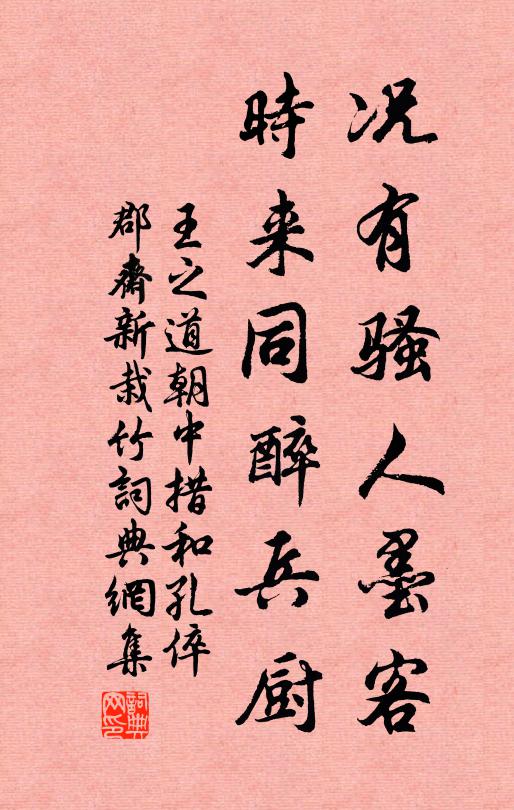 况有骚人墨客
時来同醉兵厨
王之道朝中措和孔倅
郡齋新栽竹詞典網集
詞典网印